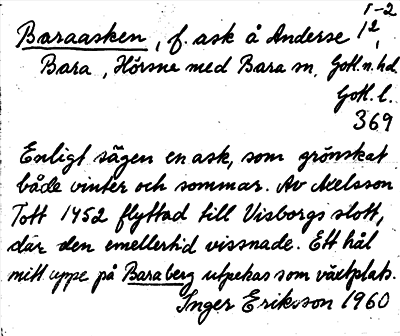 Baraasken, f. ask å Anderse 1², 1-2
Bara, Hörsne med Bara sn, Gotl. n. hd.
Gotl. l.
369
Enligt sägen en ask, som grönskat
både vinter och sommar. Av Axelsson
Tott 1452 flyttad till Visborgs slott,
där den emellertid vissnade. Ett hål
mitt uppe på Baraberg utpekas som växtplats.
Inger Eriksson 1960